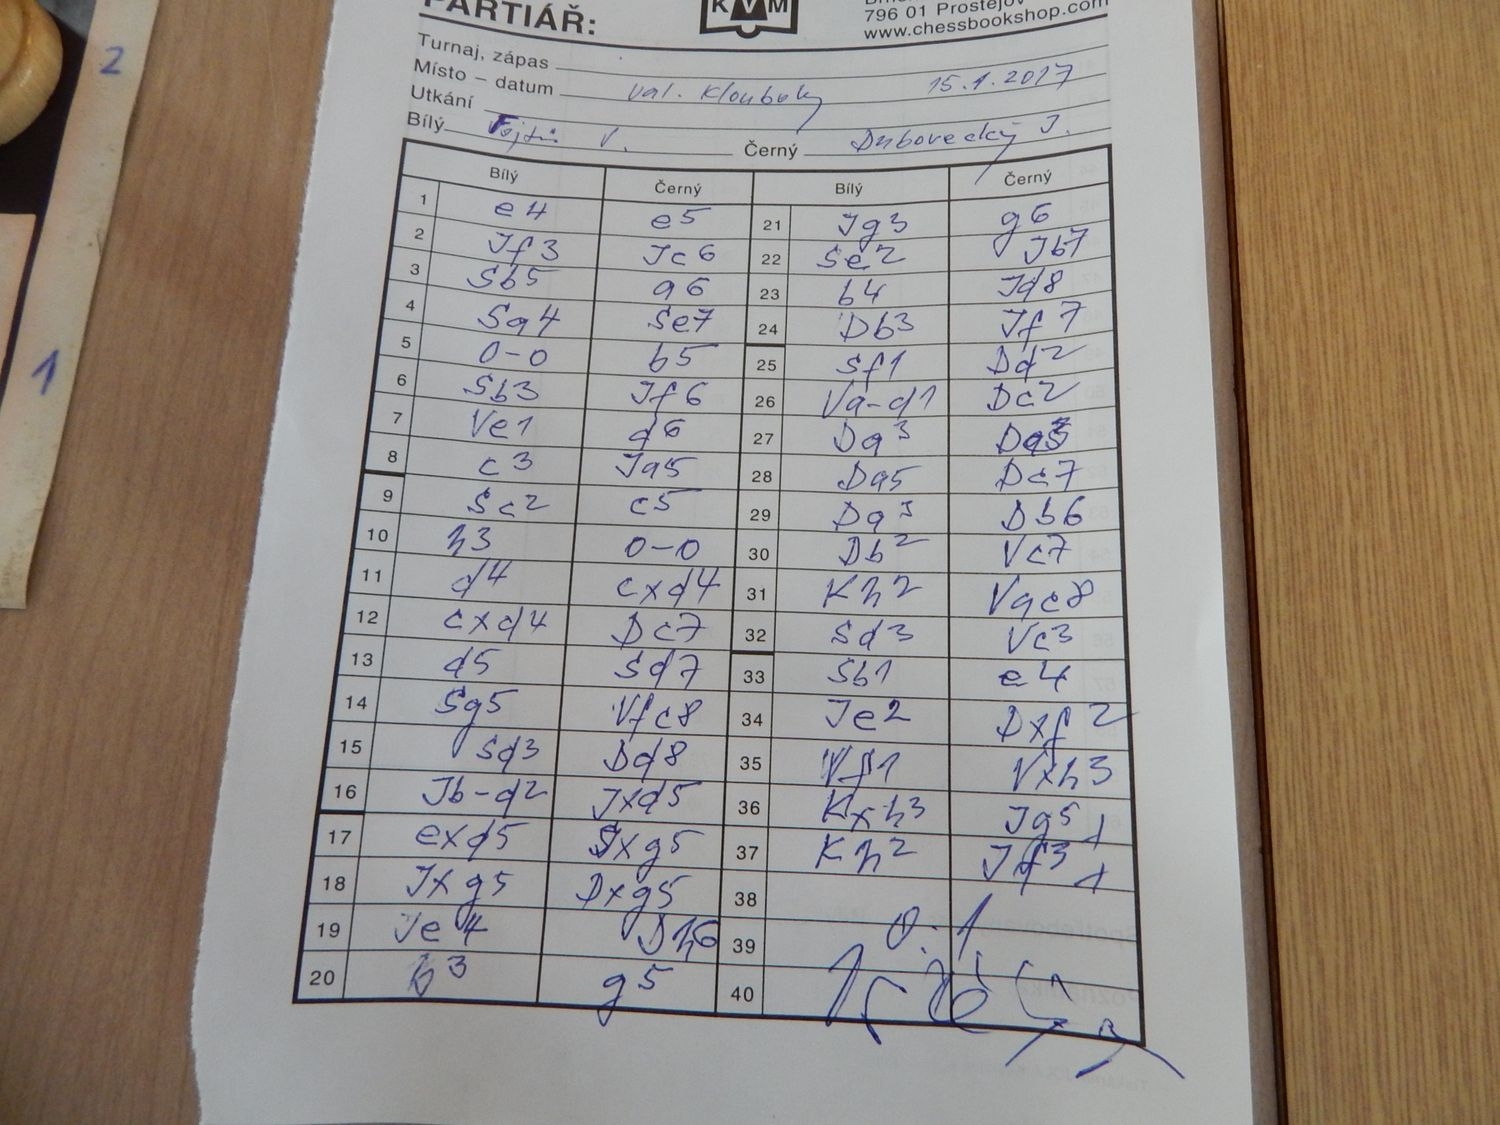 PARTIÁŘ:
KVM
796 01 Prostějov
www.chessbookshop.com
Turnaj, zápas
Místo – datum val. Klobouky 15.1.2017
Utkání
Bílý V. Černý Dubovecký J.
Bílý Černý Bílý Černý
1 e4 e5 21 Jg3 g6
2 Jf3 Jc6 22 Se2 Jb7
3 Sb5 a6 23 b4 Jd8
4 Sa4 Se7 24 Db3 Jf7
5 0-0 b5 25 Sf1 Dd2
6 Sb3 Jf6 26 Va-d1 Dc2
7 Ve1 d6 27 Da3
8 c3 Ja5 28 Da5 Dc7
9 Sc2 c5 29 Da3 Db6
10 h3 0-0 30 Db2 Vc7
11 d4 cxd4 31 Kh2 Vac8
12 cxd4 Dc7 32 Sd3 Vc3
13 d5 Sd7 33 Sb1 e4
14 Sg5 Vfc8 34 Je2 Dxf2
15 Sd3 Dd8 35 Vf1 Vxh3
16 Jb-d2 Jxd5 36 Kxh3 Jg5+
17 exd5 Sxg5 37 Kh2 Jf3+
18 Jxg5 Dxg5 38
19 Je4 Dh6 39 0:1
20 b3 g5 40
2
1